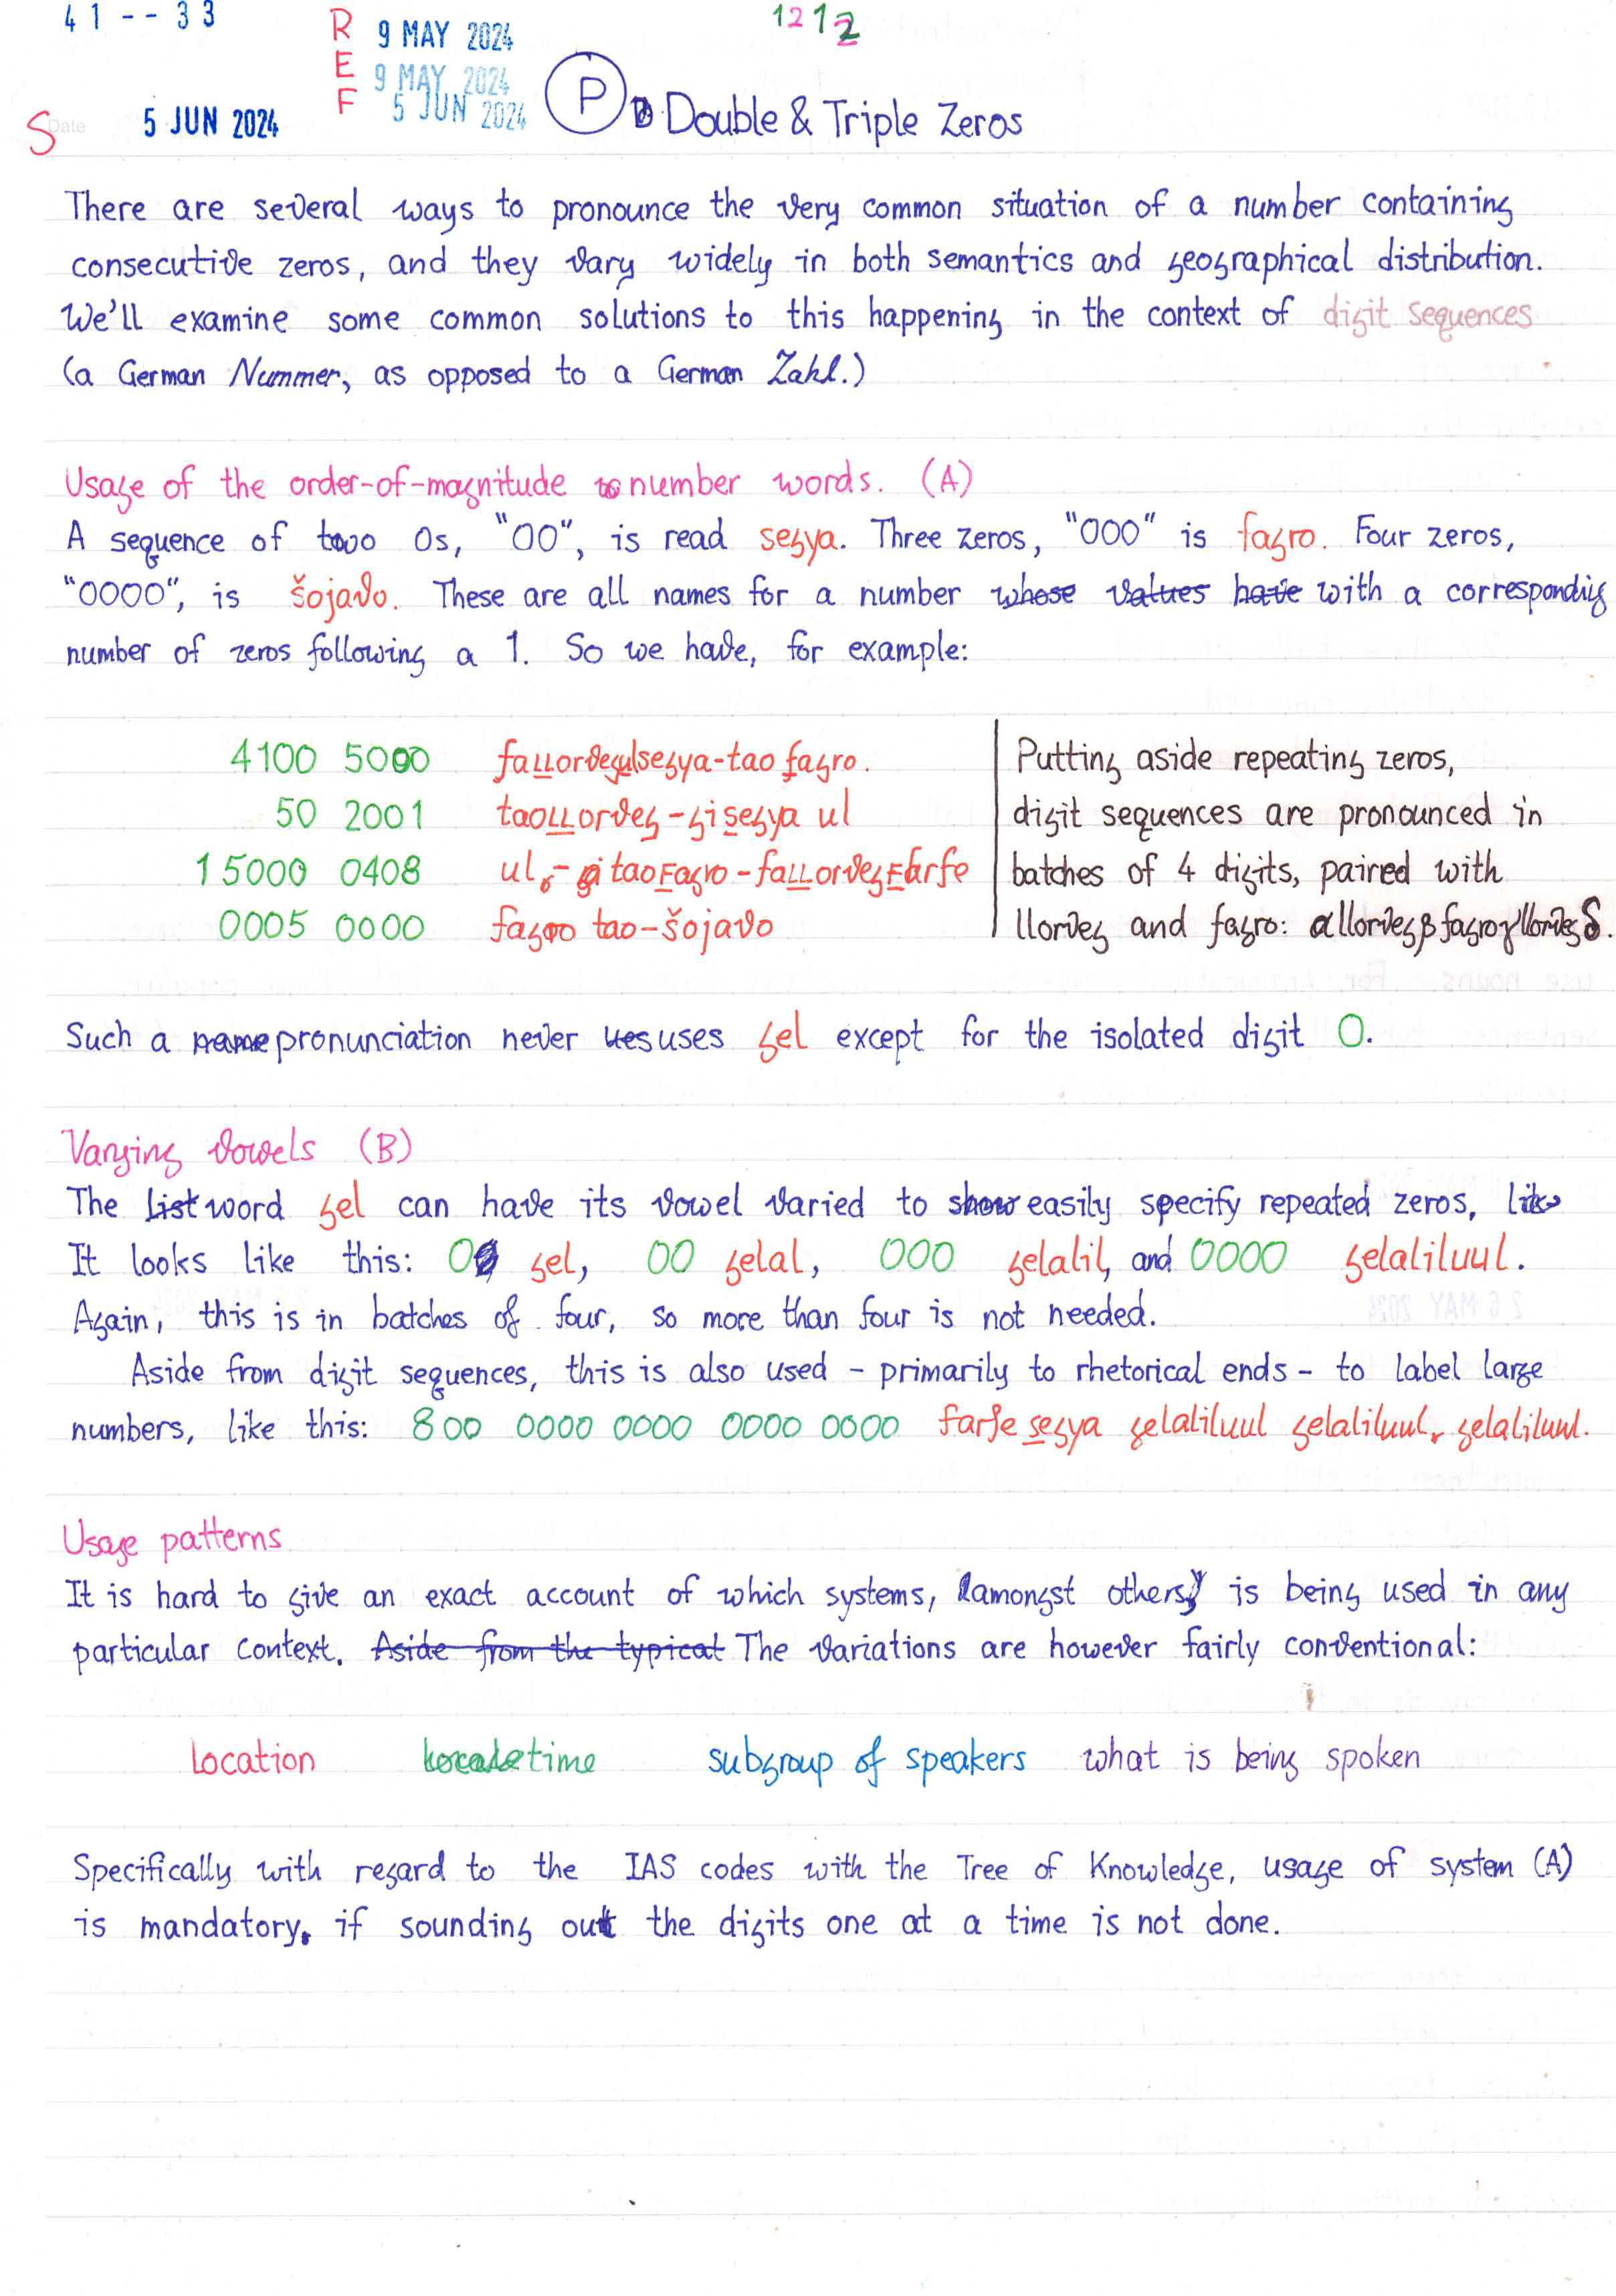 41--33
REF
9 MAY 2024
1212
9 MAY 2024
5 JUN 2024
S Date 5 JUN 2024
P Double & Triple Zeros
There are several ways to pronounce the very common situation of a number containing
consecutive zeros, and they vary widely in both semantics and geographical distribution.
We'll examine some common solutions to this happening in the context of digit sequences
(a German Nummer, as opposed to a German Zahl.)
Usage of the order-of-magnitude number words. (A)
A sequence of two 0s, "00", is read segya. Three zeros, "000" is fagro. Four zeros,
"0000", is šojavo. These are all names for a number whose values have with a correspondig
number of zeros following a 1. So we have, for example:
4100 5000 fallorvegulsegya-tao fagro.
50 2001 taollorveg-gisegya ul
1 5000 0408 ul,- taofagro-fallorvegfarfe
0005 0000 fagro tao-šojavo
Putting aside repeating zeros,
digit sequences are pronounced in
batches of 4 digits, paired with
llorveg and fagro: αllorvegβfagroγllorvegδ.
Such a name pronunciation never ues uses gel except for the isolated digit 0.
Varying vowels (B)
The list word gel can have its vowel varied to show easily specify repeated zeros, like
It looks like this: 0 gel, 00 gelal, 000 gelalil, and 0000 gelaliluul.
Again, this is in batches of four, so more than four is not needed.
Aside from digit sequences, this is also used - primarily to rhetorical ends - to label large
numbers, like this: 800 0000 0000 0000 0000 farfe segya gelaliluul gelaliluul, gelaliluul.
Usage patterns
It is hard to give an exact account of which systems, (amongst others) is being used in any
particular context. Aside from the typical The variations are however fairly conventional:
location locale time subgroup of speakers what is being spoken
Specifically with regard to the IAS codes with the Tree of Knowledge, usage of system (A)
is mandatory. if sounding out the digits one at a time is not done.